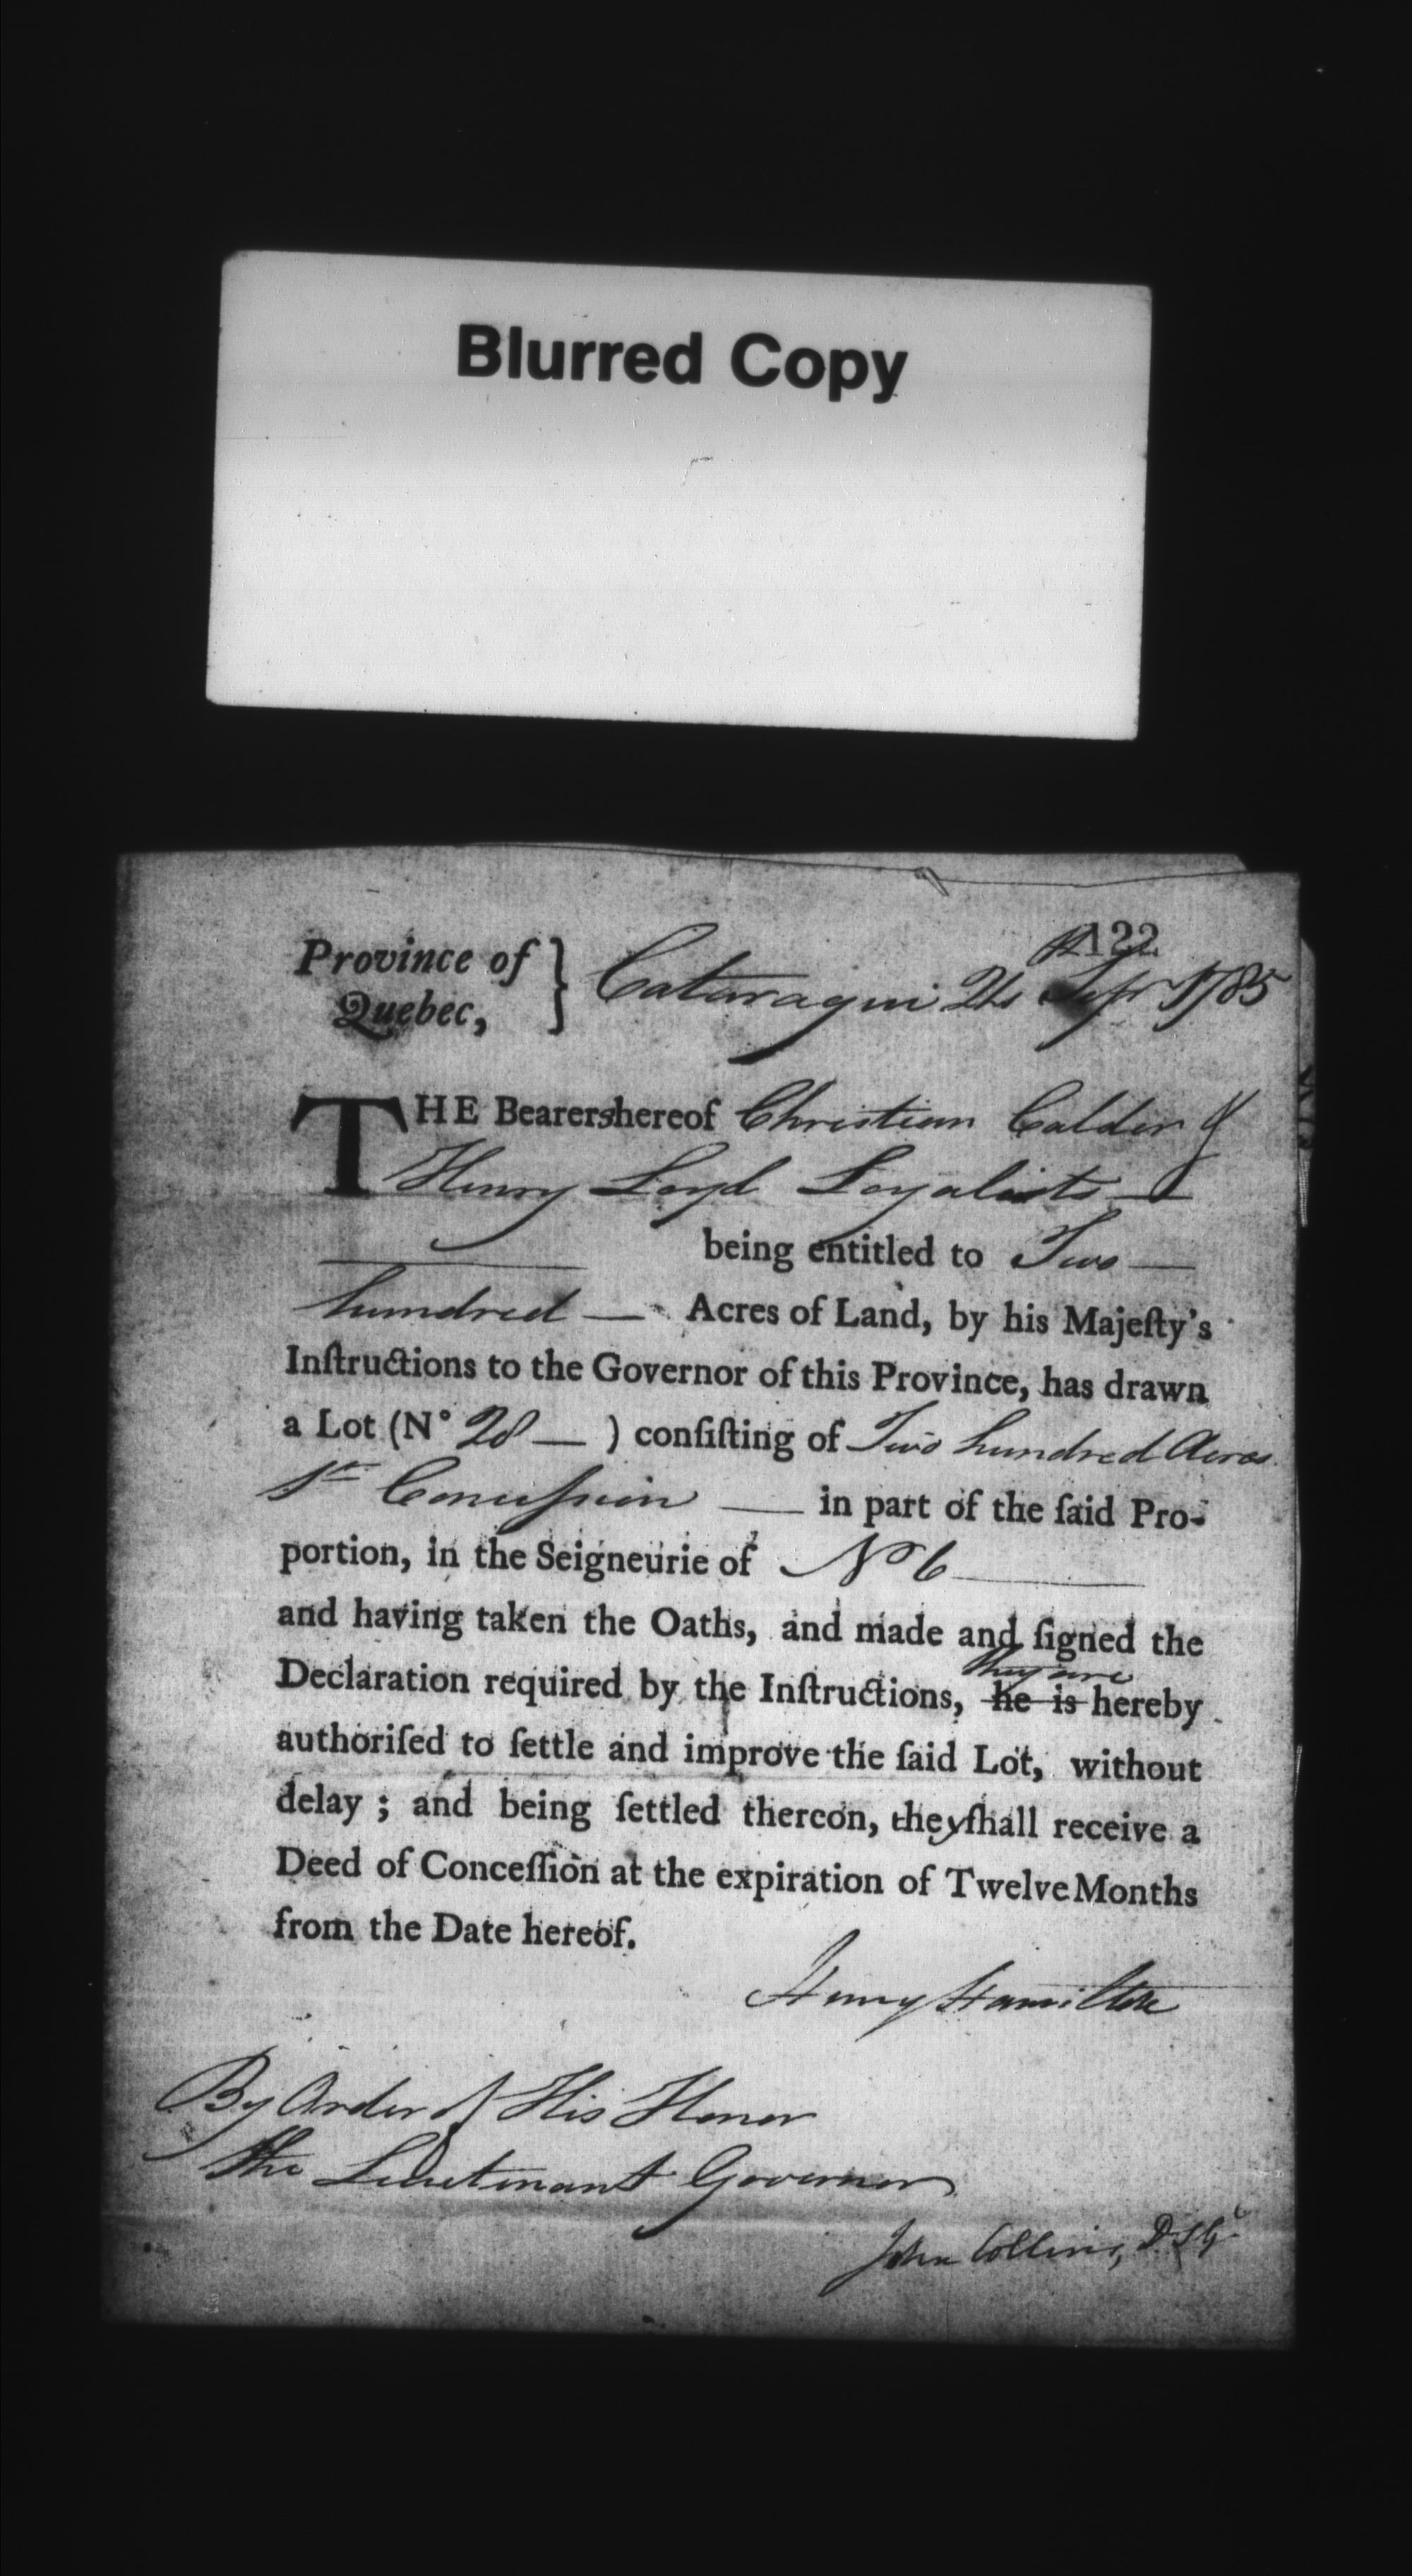 Blurred Copy
122
Province of
Quebec, } Cataraqui 24 Sepr 1785
THE Bearers hereof Christian Calder &
Henry Loyd Loyalists —
being entitled to Two —
hundred — Acres of Land, by his Majeſty's
Inſtructions to the Governor of this Province, has drawn
a Lot (N° 28 — ) conſiſting of Two hundred Acres
1st Conceſsion — in part of the ſaid Pro-
portion, in the Seigneurie of No 6
and having taken the Oaths, and made and ſigned the
they are
Declaration required by the Inſtructions, he is hereby
authoriſed to ſettle and improve the ſaid Lot, without
delay ; and being ſettled thereon, they ſhall receive a
Deed of Conceſſion at the expiration of Twelve Months
from the Date hereof.
Henry Hamilton
By Order of His Honor
the Lieutenant Governor
John Collins, D.S.G.